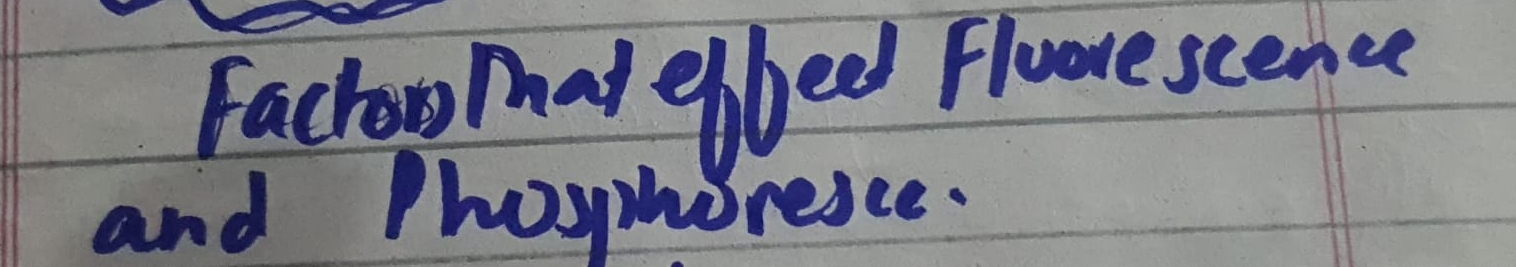 Factors That effect Fluorescence
and Phosphoresce.